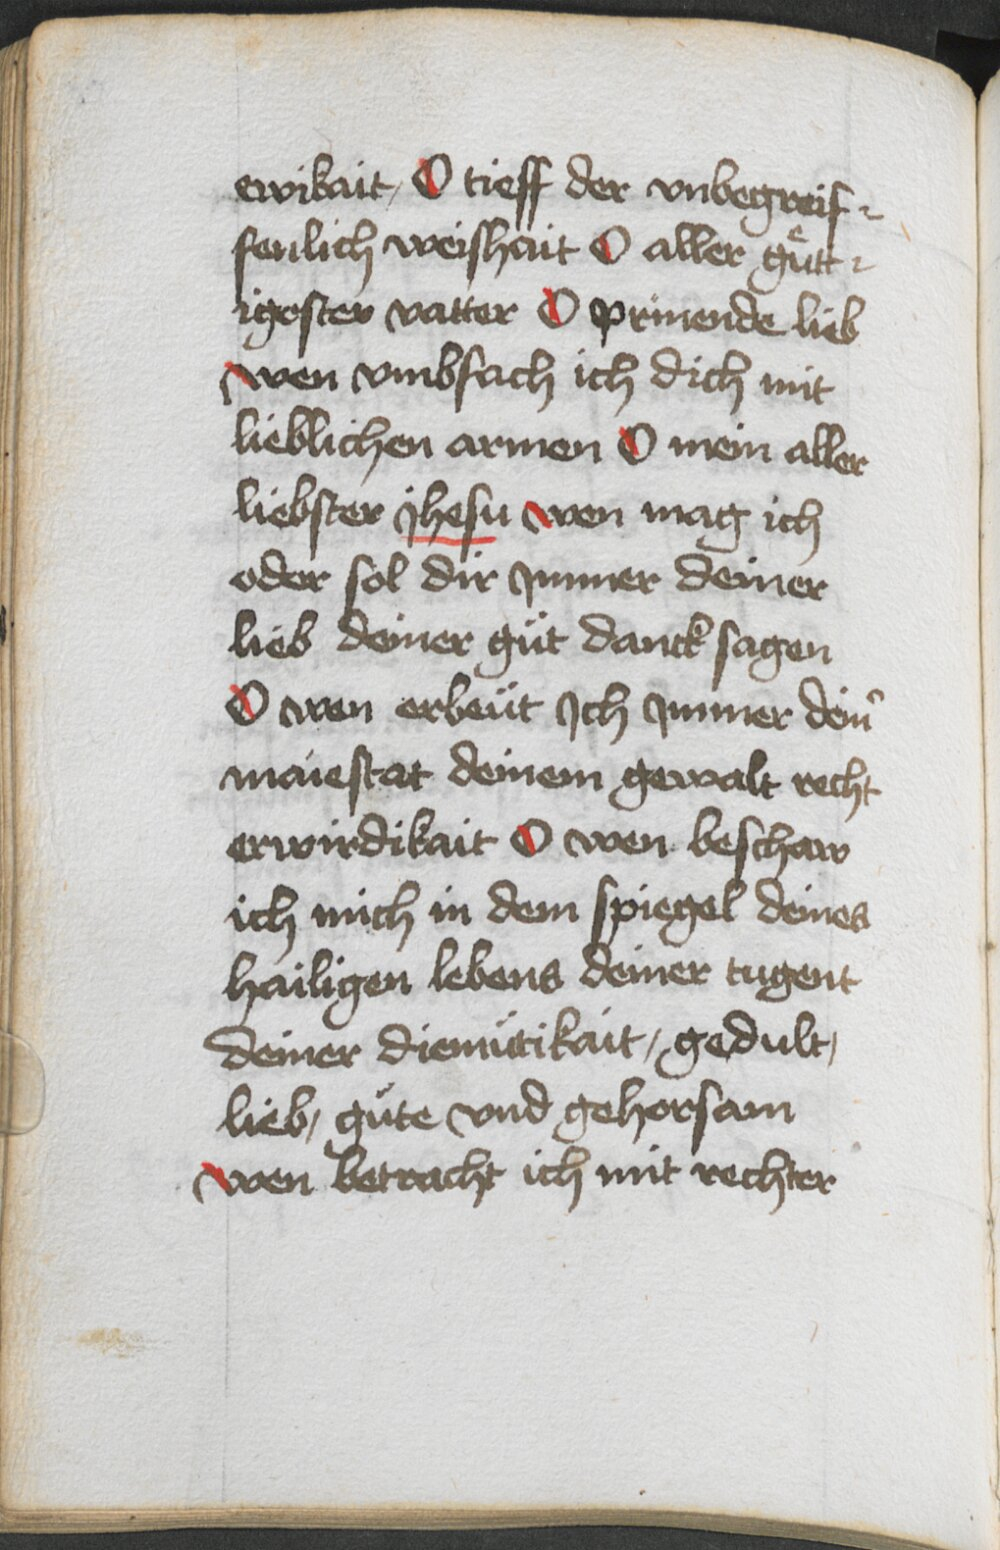 ewikait, O tieff der vnbegreif-
fenlich weishait O aller guͤtt-
igoster vatter O prinende lieb
wen vmbfach ich dich mit
lieblichen armen O mein aller
liebster jhesu wen mag ich
oder sol dir jmmer deiner
lieb deiner güt danck sagen
O wen erbeüt jch jmmer dein᷑
maiestat deinem gewalt recht
erwirdikait O wen beschaw
ich mich in dem spiegel deines
hailigen lebens deiner tugent
deiner diemütikait, gedult,
lieb, güte vnd gehorsam
wen betracht ich mit rechter